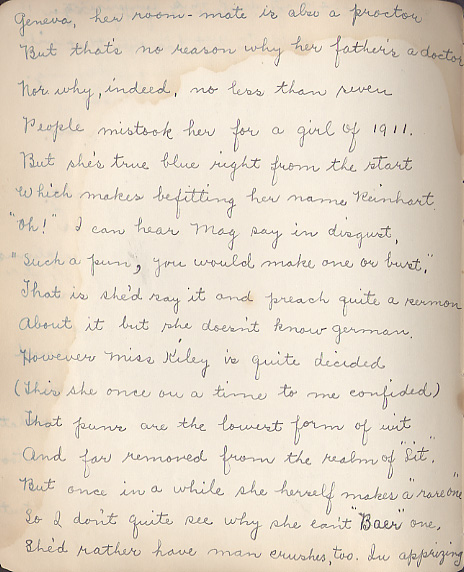 Geneva, her room-mate is also a proctor
But that's no reason why her father's a doctor
Nor why, indeed, no less than seven
People mistook her for a girl of 1911.
But she's true blue right from the start
Which makes befitting her name Reinhart.
"Oh!" I can hear Mag say in disgust,
"Such a pun, you would make one or bust."
That is she'd say it and preach quite a sermon
About it but she doesn't know german.
However Miss Kiley is quite decided
(This she once on a time to me confided)
That puns are the lowest form of wit
And far removed from the realm of "Lit".
But once in a while she herself makes a "rare one"
So I don't quite see why she can't "Baer" one,
She'd rather have man crushes, too. In apprizing